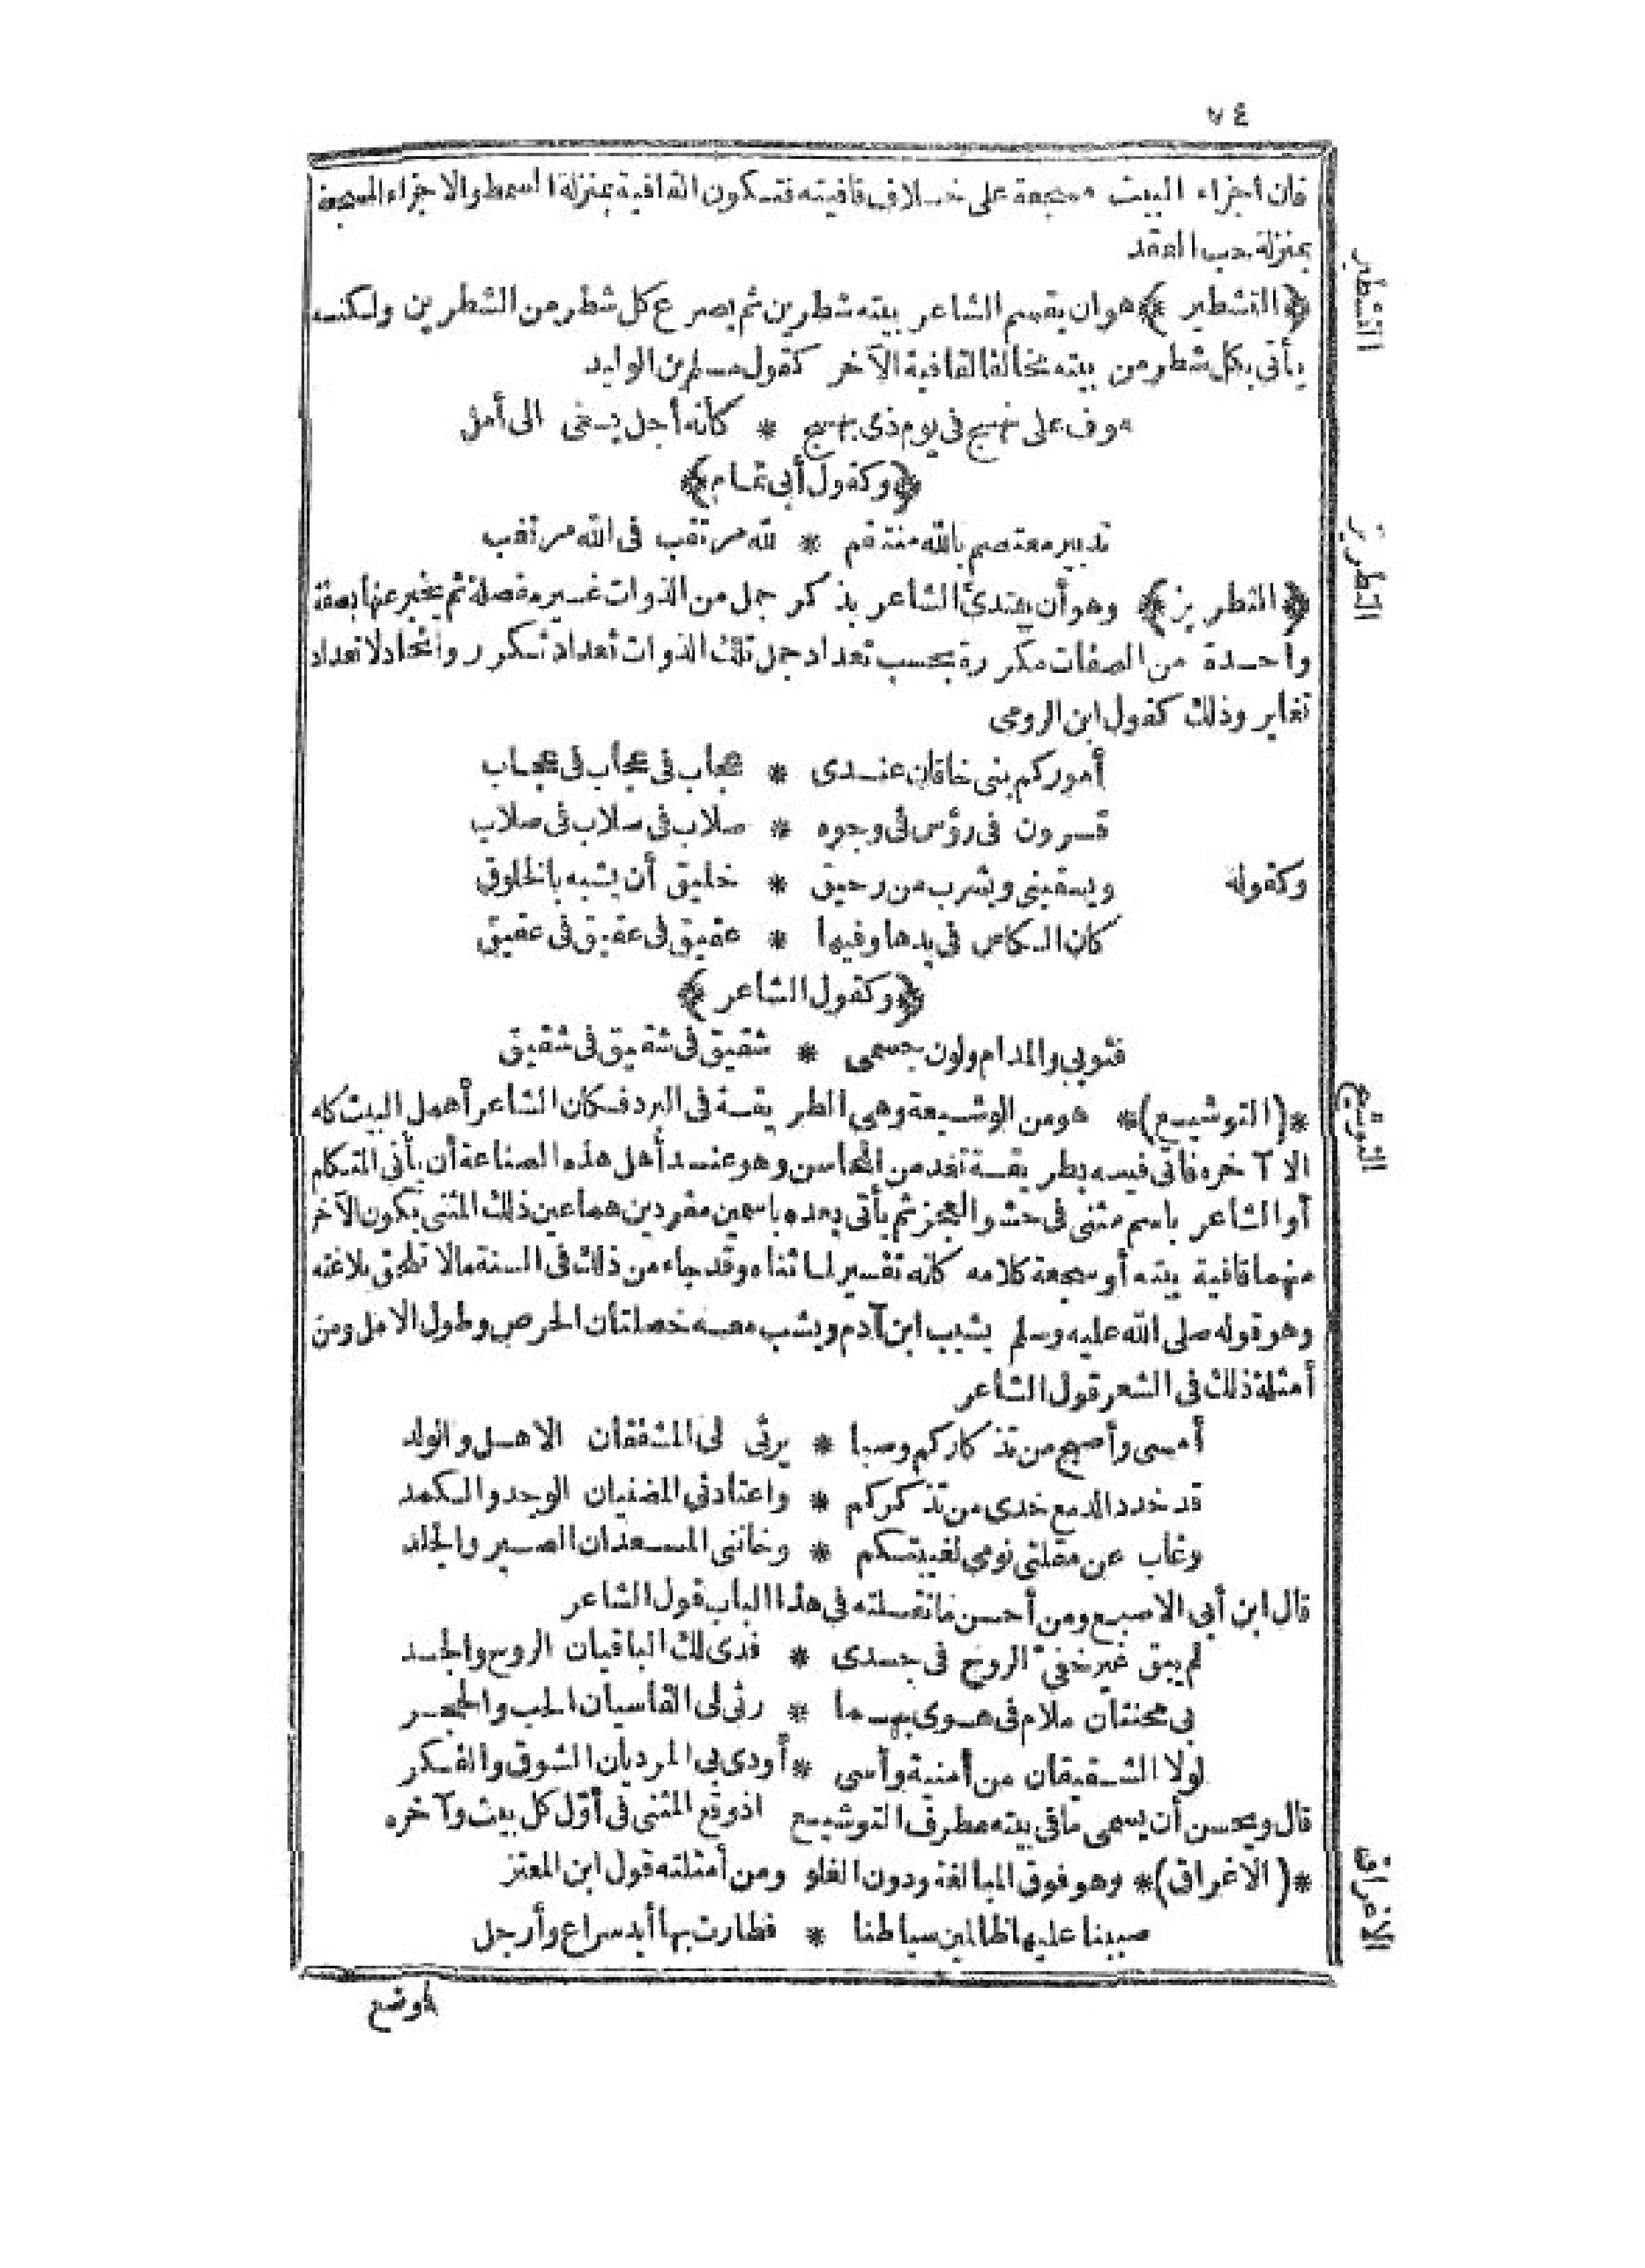 ٧٤
فان أجزاء البيت مسجعة على خلاف قافيته فتكون القافية بمنزلة السمط والاجزاء المسجعة
بمنزلة حب العقد
التشطير
﴿التشطير﴾ هو ان يقسم الشاعر بيته شطرين ثم يصرع كل شطر من الشطرين ولكنه
يأتى بكل شطر من بيته مخالفا لقافية الآخر كقول مسلم بن الوليد
موف على نهج فى يوم ذى رهج * كأنه أجل يسعى الى أمل
﴿وكقول أبى تمام﴾
تدبير معتصم بالله منتقم * لله مرتقب فى الله مرتغب
التطريز
﴿التطريز﴾ وهو أن يبتدئ الشاعر بذكر جمل من الذوات غير مفصلة ثم يخبر عنها بصفة
واحدة من الصفات مكررة بحسب تعداد جمل تلك الذوات تعداد تكرر واتحاد لا تعداد
تغاير وذلك كقول ابن الرومى
أموركم بنى خاقان عندى * عجاب فى عجاب فى عجاب
قرون فى رؤس فى وجوه * صلاب فى صلاب فى صلاب
وكقوله ويسقينى ويشرب من رحيق * خليق أن يشبه بالخلوق
كان الكاس فى يدها وفيها * عقيق فى عقيق فى عقيق
﴿وكقول الشاعر﴾
فثوبى والمدام ولون جسمى * شقيق فى شقيق فى شقيق
التوشيع
*(التوشيع)* هو من الوشيعة وهى الطريقة فى البرد فكان الشاعر أهمل البيت كله
الا آخره فاتى فيه بطريقة تعد من المحاسن وهو عند أهل هذه الصناعة أن يأتى المتكلم
أو الشاعر باسم مثنى فى حشو العجز ثم يأتى بعده باسمين مفردين هما عين ذلك المثنى يكون الآخر
منهما قافية بيته أو سجعة كلامه كانه تفسير لما ثناه وقد جاء من ذلك فى السنة مالا تلحق بلاغته
وهو قوله صلى الله عليه وسلم يشيب ابن آدم ويشب معه خصلتان الحرص وطول الامل ومن
أمثلة ذلك فى الشعر قول الشاعر
أمسى وأصبح من تذكاركم وصبا * يرثى لى المشفقان الاهل والولد
قد خدد الدمع خدى من تذكركم * واعتادنى المضنيان الوجد والكمد
وغاب عن مقلتى نومى لغيبتكم * وخاننى المسعدان الصبر والجلد
قال ابن أبى الاصبع ومن أحسن ما نقلته فى هذا الباب قول الشاعر
لم يبق غير خفى الروح فى جسدى * فدى لك الباقيان الروح والجسد
بى محنتان ملام فى هوى بهما * رثى لى القاسيان الحب والحجر
لولا الشقيقان من أمنية وأسى * أودى بى المرديان الشوق والفكر
قال ويحسن أن يسمى ما فى بيته مطرف التوشيع اذ وقع المثنى فى أوّل كل بيت وآخره
الاغراق
*(الاغراق)* وهو فوق المبالغة ودون الغلو ومن أمثلته قول ابن المعتز
صببنا عليها ظالمين سياطنا * فطارت بها أيد سراع وأرجل